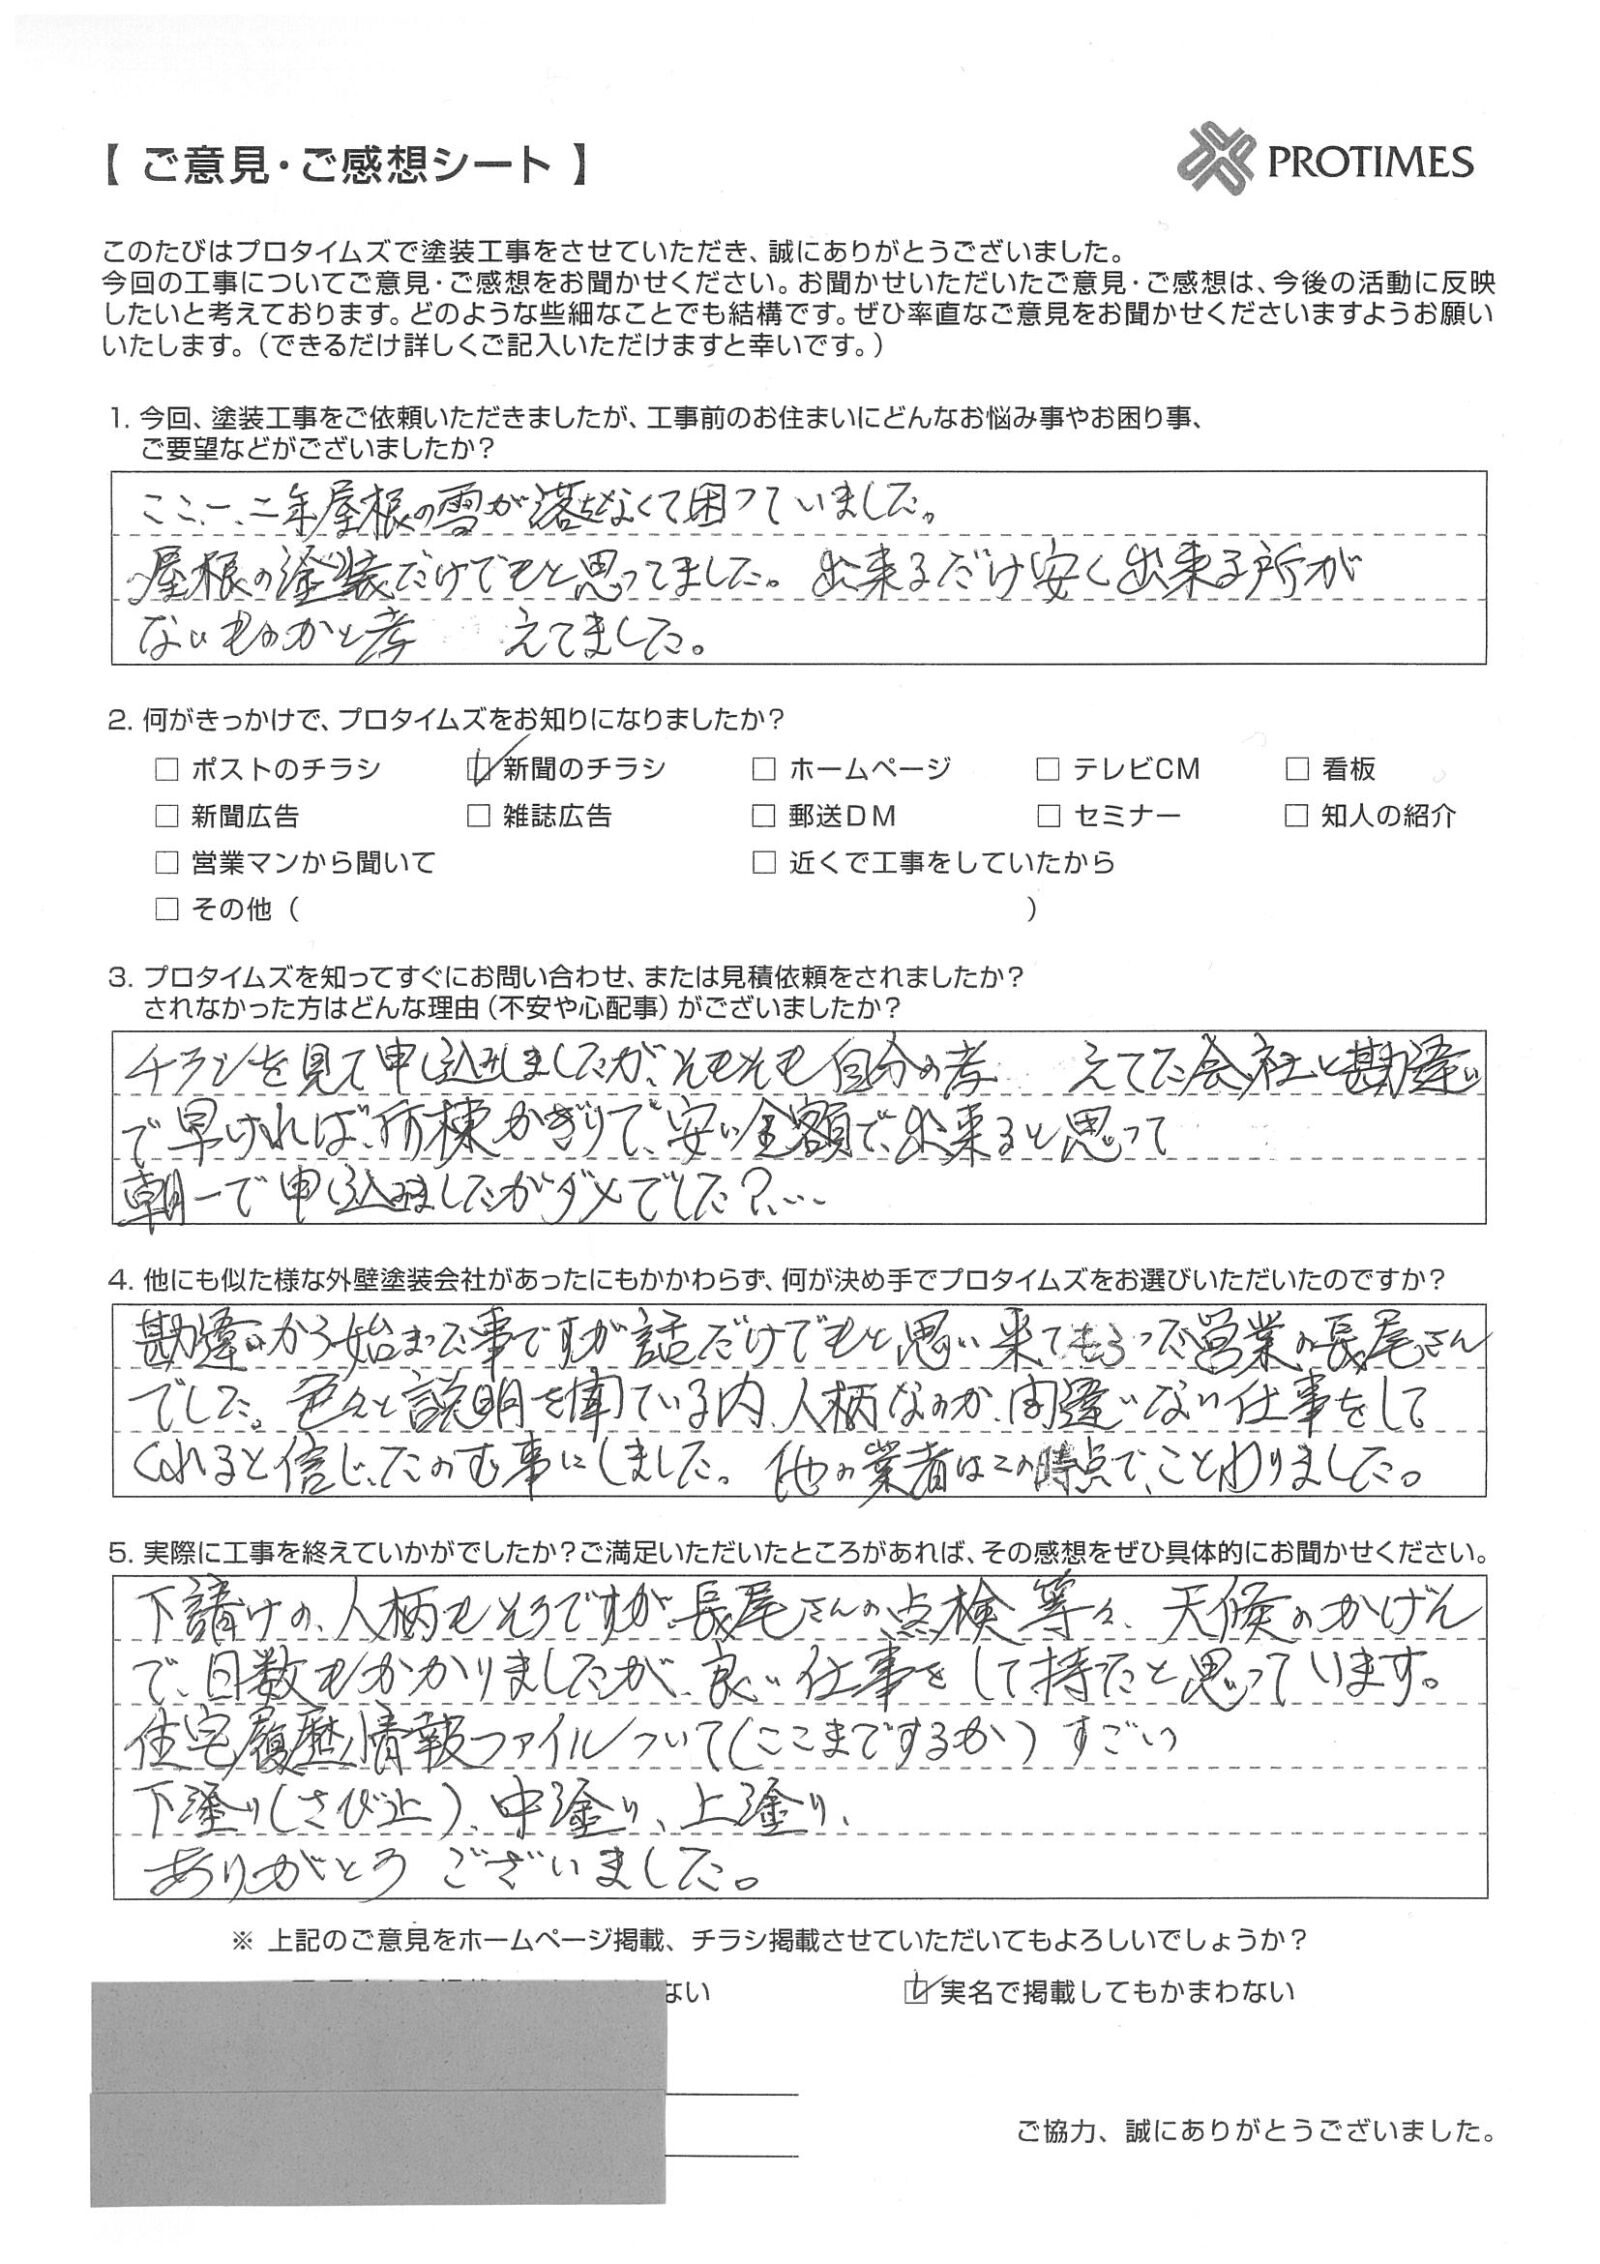 【 ご意見・ご感想シート 】
PROTIMES
このたびはプロタイムズで塗装工事をさせていただき、誠にありがとうございました。
今回の工事についてご意見・ご感想をお聞かせください。お聞かせいただいたご意見・ご感想は、今後の活動に反映
したいと考えております。どのような些細なことでも結構です。ぜひ率直なご意見をお聞かせくださいますようお願い
いたします。（できるだけ詳しくご記入いただけますと幸いです。）
1. 今回、塗装工事をご依頼いただきましたが、工事前のお住まいにどんなお悩み事やお困り事、
ご要望などがございましたか？
ここ、一、二年屋根の雪が落ちなくて困っていました。
屋根の塗装だけでもと思ってました。出来るだけ安く出来る所が
ないものかと考 えてました。
2. 何がきっかけで、プロタイムズをお知りになりましたか？
□ ポストのチラシ ☑ 新聞のチラシ □ ホームページ □ テレビCM □ 看板
□ 新聞広告 □ 雑誌広告 □ 郵送DM □ セミナー □ 知人の紹介
□ 営業マンから聞いて □ 近くで工事をしていたから
□ その他（ ）
3. プロタイムズを知ってすぐにお問い合わせ、または見積依頼をされましたか？
されなかった方はどんな理由（不安や心配事）がございましたか？
チラシを見て申し込みしましたが、そもそも自分の考 えてた会社と勘違い
で早ければ、何棟かぎりで、安い金額で、出来ると思って
朝一で申し込みましたがダメでした？…
4. 他にも似た様な外壁塗装会社があったにもかかわらず、何が決め手でプロタイムズをお選びいただいたのですか？
勘違いから始まった事ですが話だけでもと思い来てもらった営業の長尾さん
でした。色々と説明を聞いている内、人柄なのか、間違いない仕事をして
くれると信じ、たのむ事にしました。他の業者はこの時点で、ことわりました。
5. 実際に工事を終えていかがでしたか？ご満足いただいたところがあれば、その感想をぜひ具体的にお聞かせください。
下請けの、人柄もそうですが、長尾さんの点検等々、天候のかげん
で、日数もかかりましたが、良い仕事をして持たと思っています。
住宅履歴情報ファイルついて（ここまでするか）すごいっ
下塗り（さび止）、中塗り、上塗り、
ありがとう ございました。
※ 上記のご意見をホームページ掲載、チラシ掲載させていただいてもよろしいでしょうか？
ない ☑ 実名で掲載してもかまわない
ご協力、誠にありがとうございました。